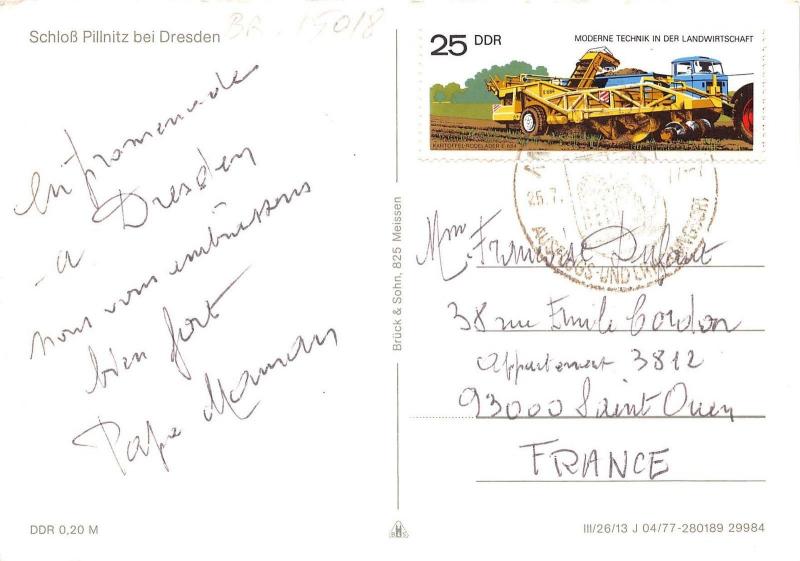 Schloß Pillnitz bei Dresden
BR. 15018
En promenade
a Dresden
nous vous embrassons
bien fort
Papa Maman
DDR 0,20 M
Brück & Sohn, 825 Meissen
25 DDR
MODERNE TECHNIK IN DER LANDWIRTSCHAFT
KARTOFFEL-RODELADER E 684
25.7.
AUSFLUGS- UND
Mme Françoise Dufour
38 rue Emile Cordon
Appartement 3812
93000 Saint Ouen
FRANCE
III/26/13 J 04/77-280189 29984